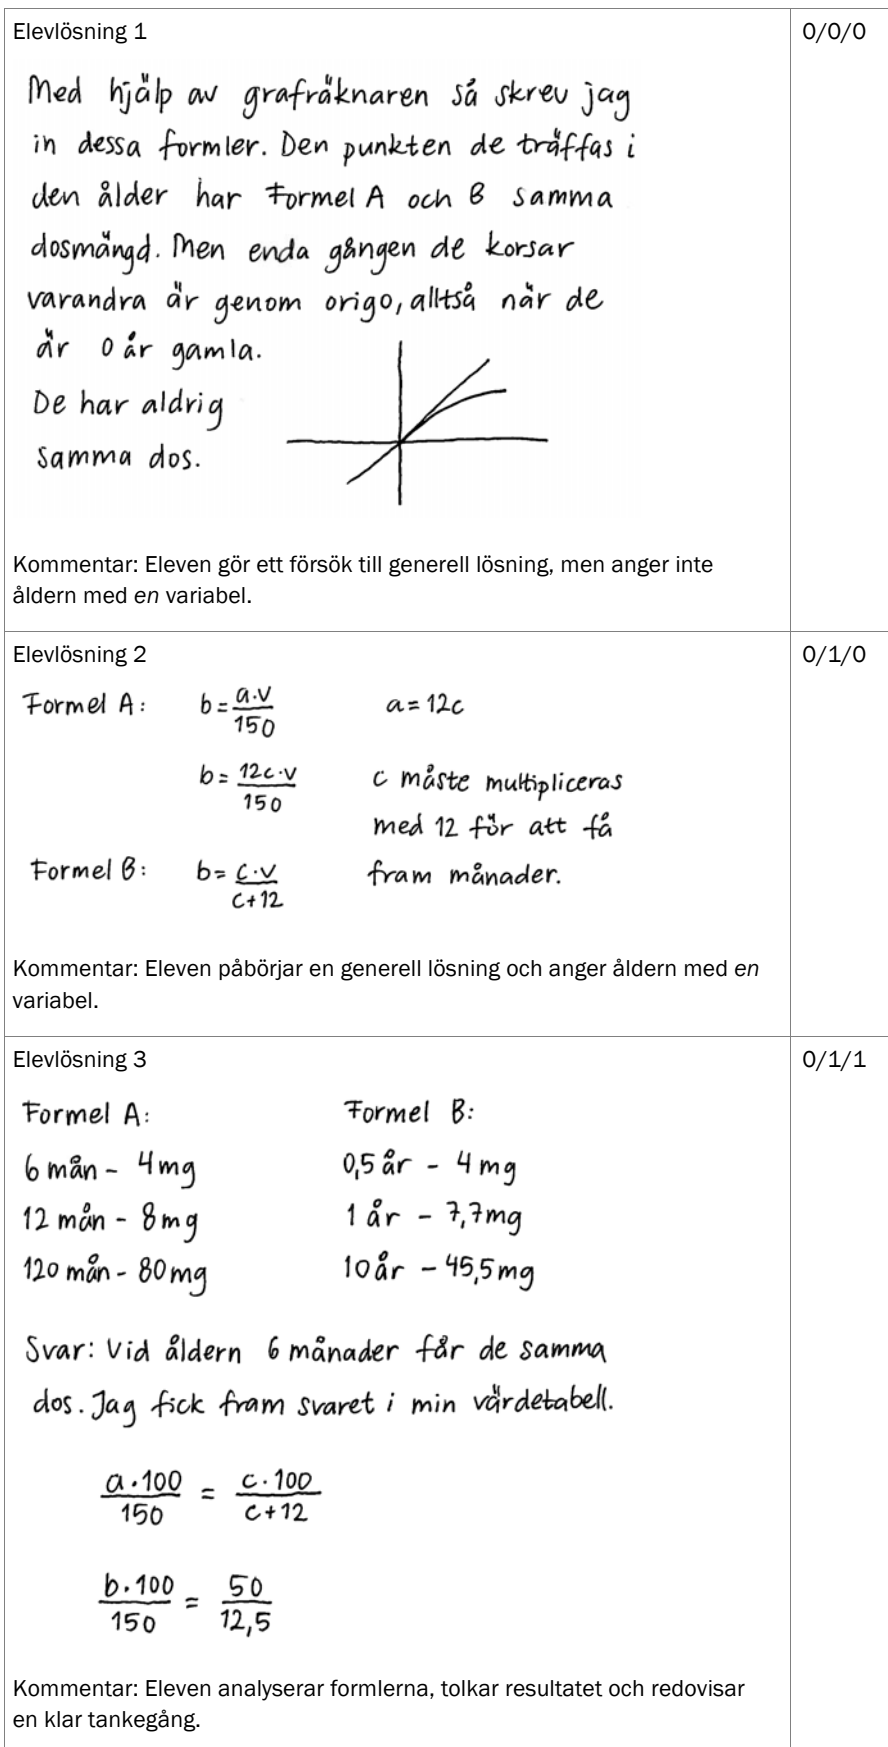 Elevlösning 1 0/0/0
Med hjälp av grafräknaren så skrev jag
in dessa formler. Den punkten de träffas i
den ålder har Formel A och B samma
dosmängd. Men enda gången de korsar
varandra är genom origo, alltså när de
är 0 år gamla.
De har aldrig
samma dos.
Kommentar: Eleven gör ett försök till generell lösning, men anger inte
åldern med en variabel.
Elevlösning 2 0/1/0
Formel A: b = a·v/150 a = 12c
b = 12c·v/150 c måste multipliceras
med 12 för att få
Formel B: b = c·v/c+12 fram månader.
Kommentar: Eleven påbörjar en generell lösning och anger åldern med en
variabel.
Elevlösning 3 0/1/1
Formel A: Formel B:
6 mån - 4 mg 0,5 år - 4 mg
12 mån - 8 mg 1 år - 7,7 mg
120 mån - 80 mg 10 år - 45,5 mg
Svar: Vid åldern 6 månader får de samma
dos. Jag fick fram svaret i min värdetabell.
a·100/150 = c·100/c+12
b·100/150 = 50/12,5
Kommentar: Eleven analyserar formlerna, tolkar resultatet och redovisar
en klar tankegång.